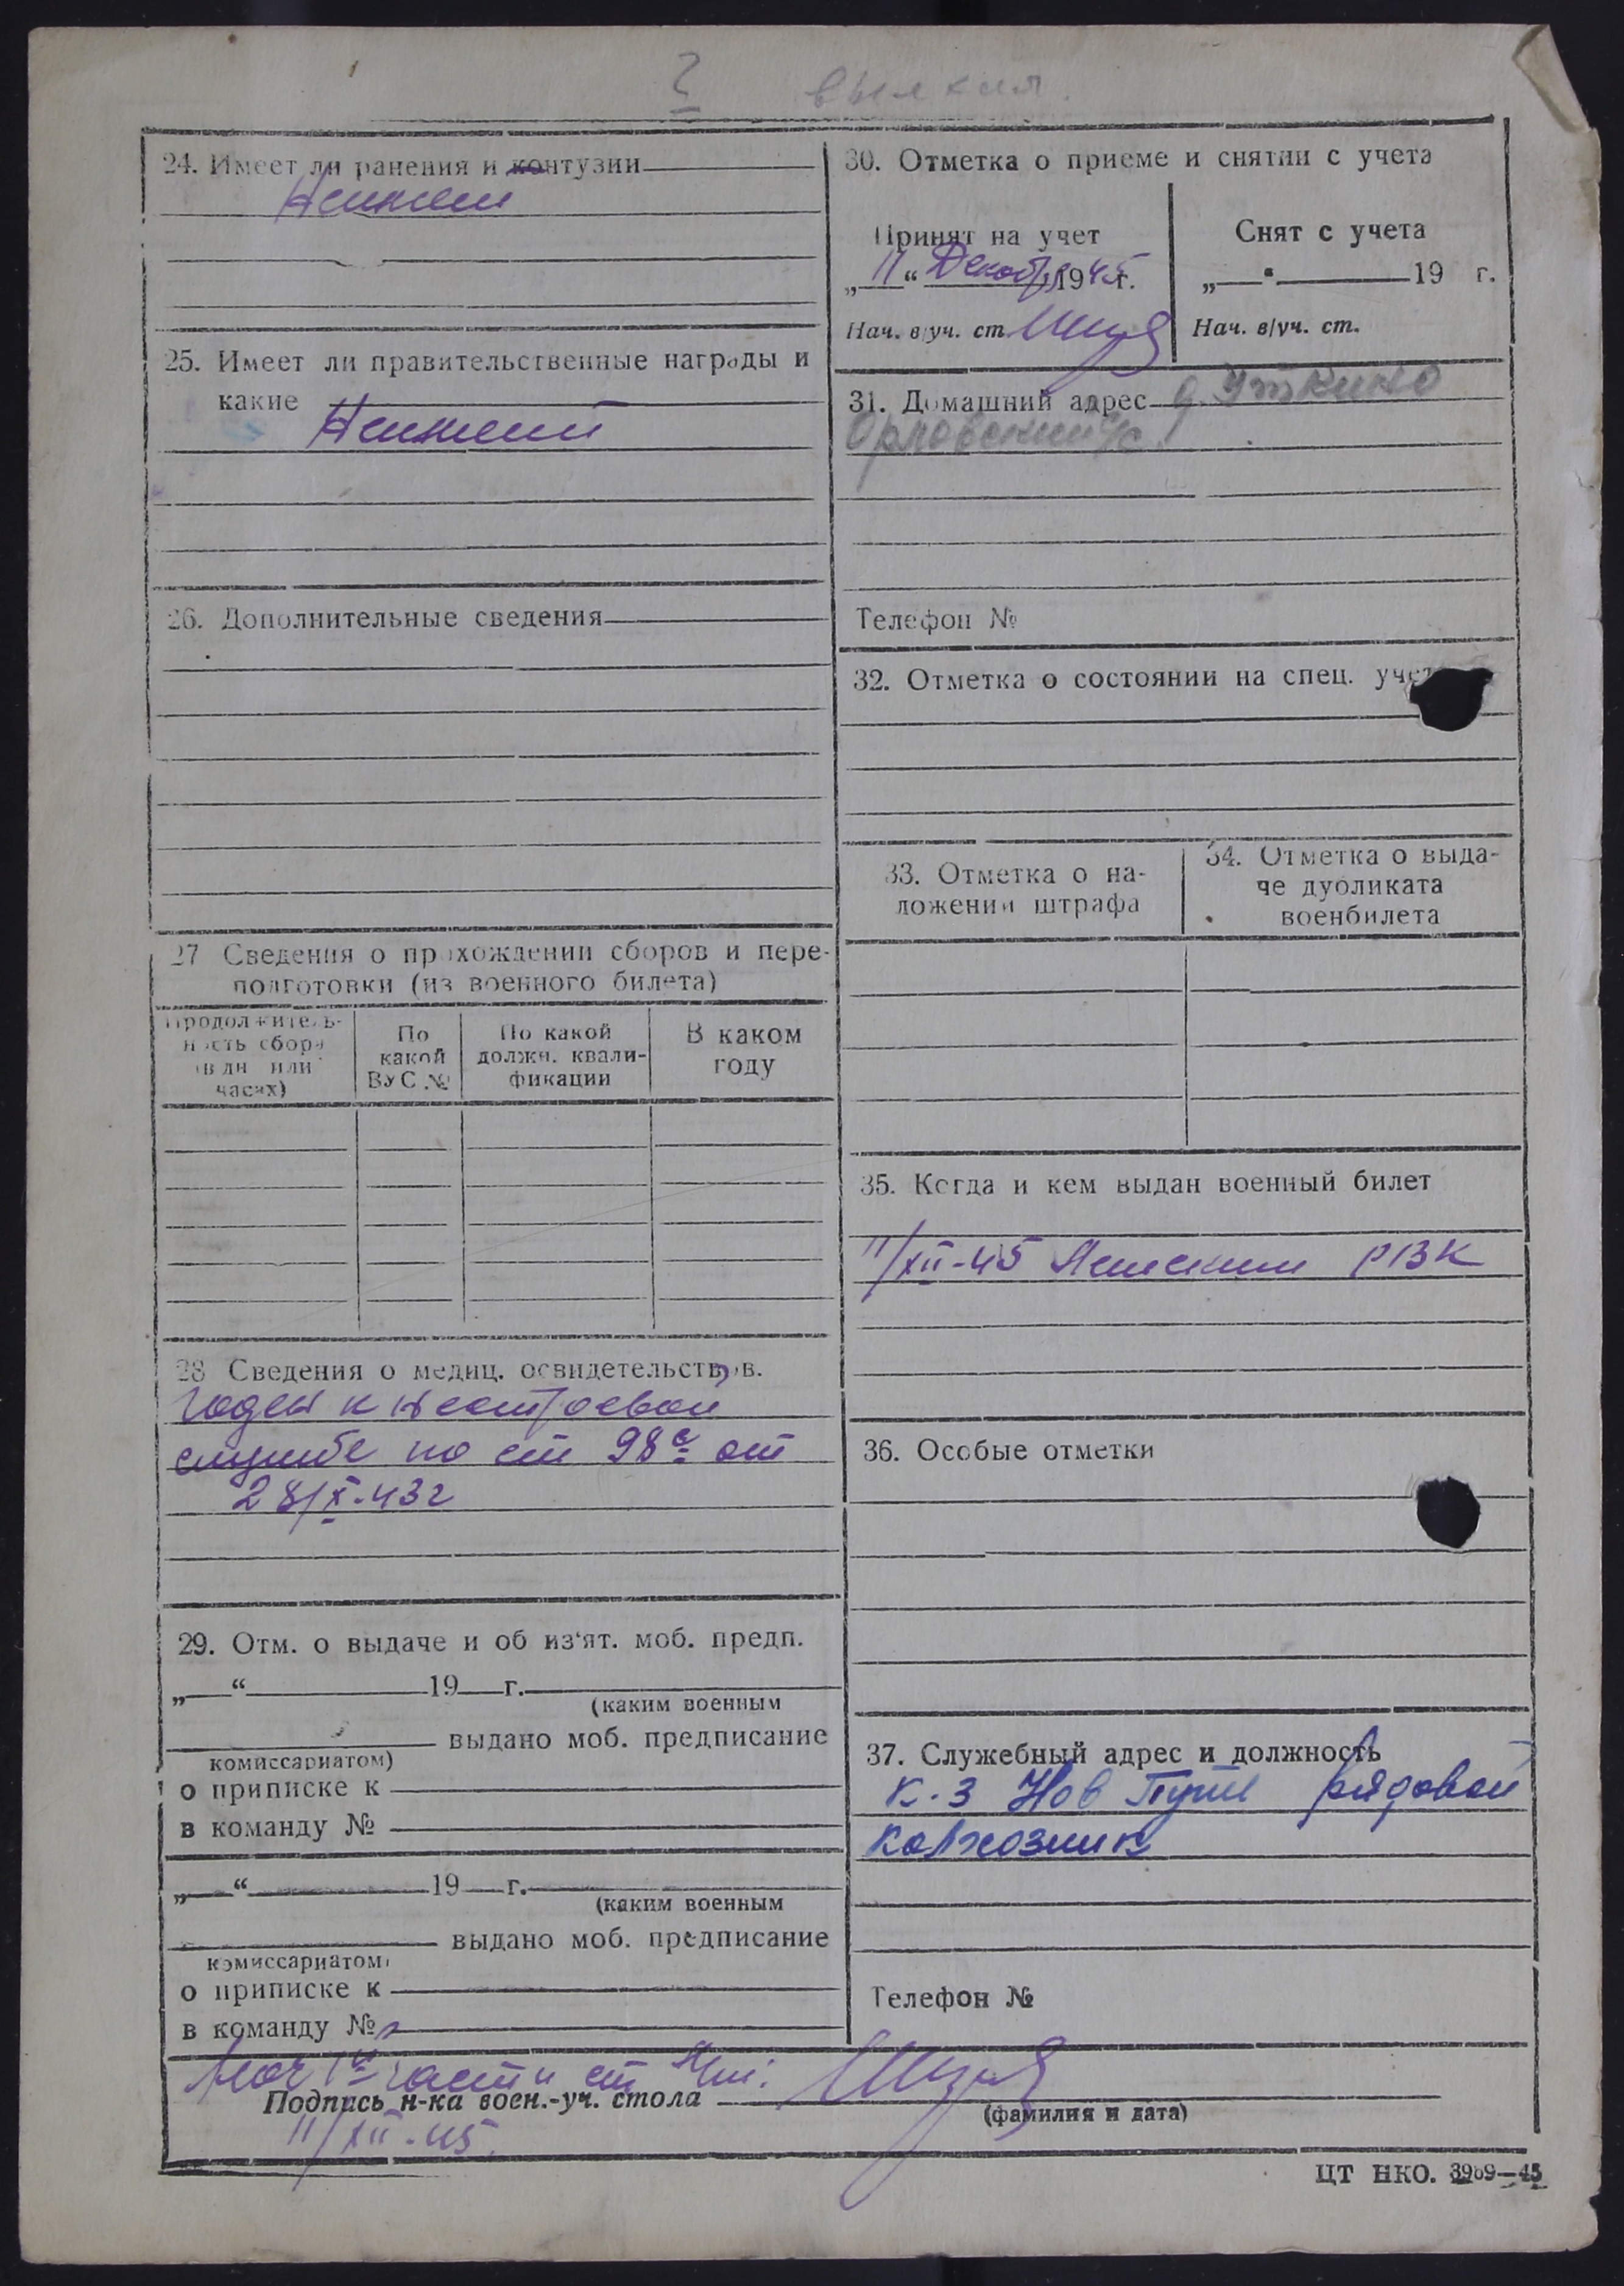 24. Имеет ли ранения и контузии
Неимеет
25. Имеет ли правительственные награды и
какие
Неимеет
26. Дополнительные сведения
27 Сведения о прохождении сборов и пере-
подготовки (из военного билета)
Продолжитель-
ность сбора
(в дн или
часах)
По
какой
ВУС №
По какой
должн. квали-
фикации
В каком
году
28 Сведения о медиц. освидетельствов.
Годен к нестроевой
службе по ст 98 с от
28/X-43г
29. Отм. о выдаче и об из'ят. моб. предп.
„ “ 19 г.
(каким военным
выдано моб. предписание
комиссариатом)
о приписке к
в команду №
„ “ 19 г.
(каким военным
выдано моб. предписание
комиссариатом)
о приписке к
в команду №
30. Отметка о приеме и снятии с учета
Принят на учет
„11“ Декабр 1945г.
Нач. в/уч. ст
Снят с учета
„ “ 19 г.
Нач. в/уч. ст.
31. Домашний адрес д. Уткино
Орловский с/с
Телефон №
32. Отметка о состоянии на спец. учете
33. Отметка о на-
ложении штрафа
34. Отметка о выда-
че дубликата
военбилета
35. Когда и кем выдан военный билет
11/XII-45 РВК
36. Особые отметки
37. Служебный адрес и должность
К-з Нов Путь рядовой
колхозник
Телефон №
Нач 1й части ст
Подпись н-ка воен.-уч. стола
(фамилия и дата)
11/XII-45.
ЦТ НКО. 3969—45